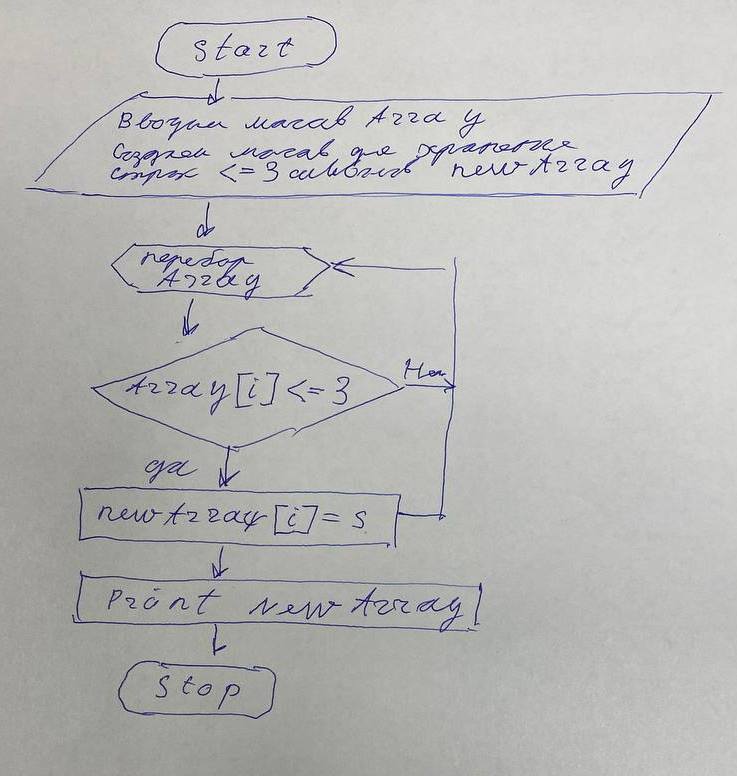 Start
Вводим масив Array
Создаем масив для хранение
строк <= 3 символов newArray
перебор
Array
Array[i] <= 3
Нет
да
newArray[i] = s
Print NewArray
Stop